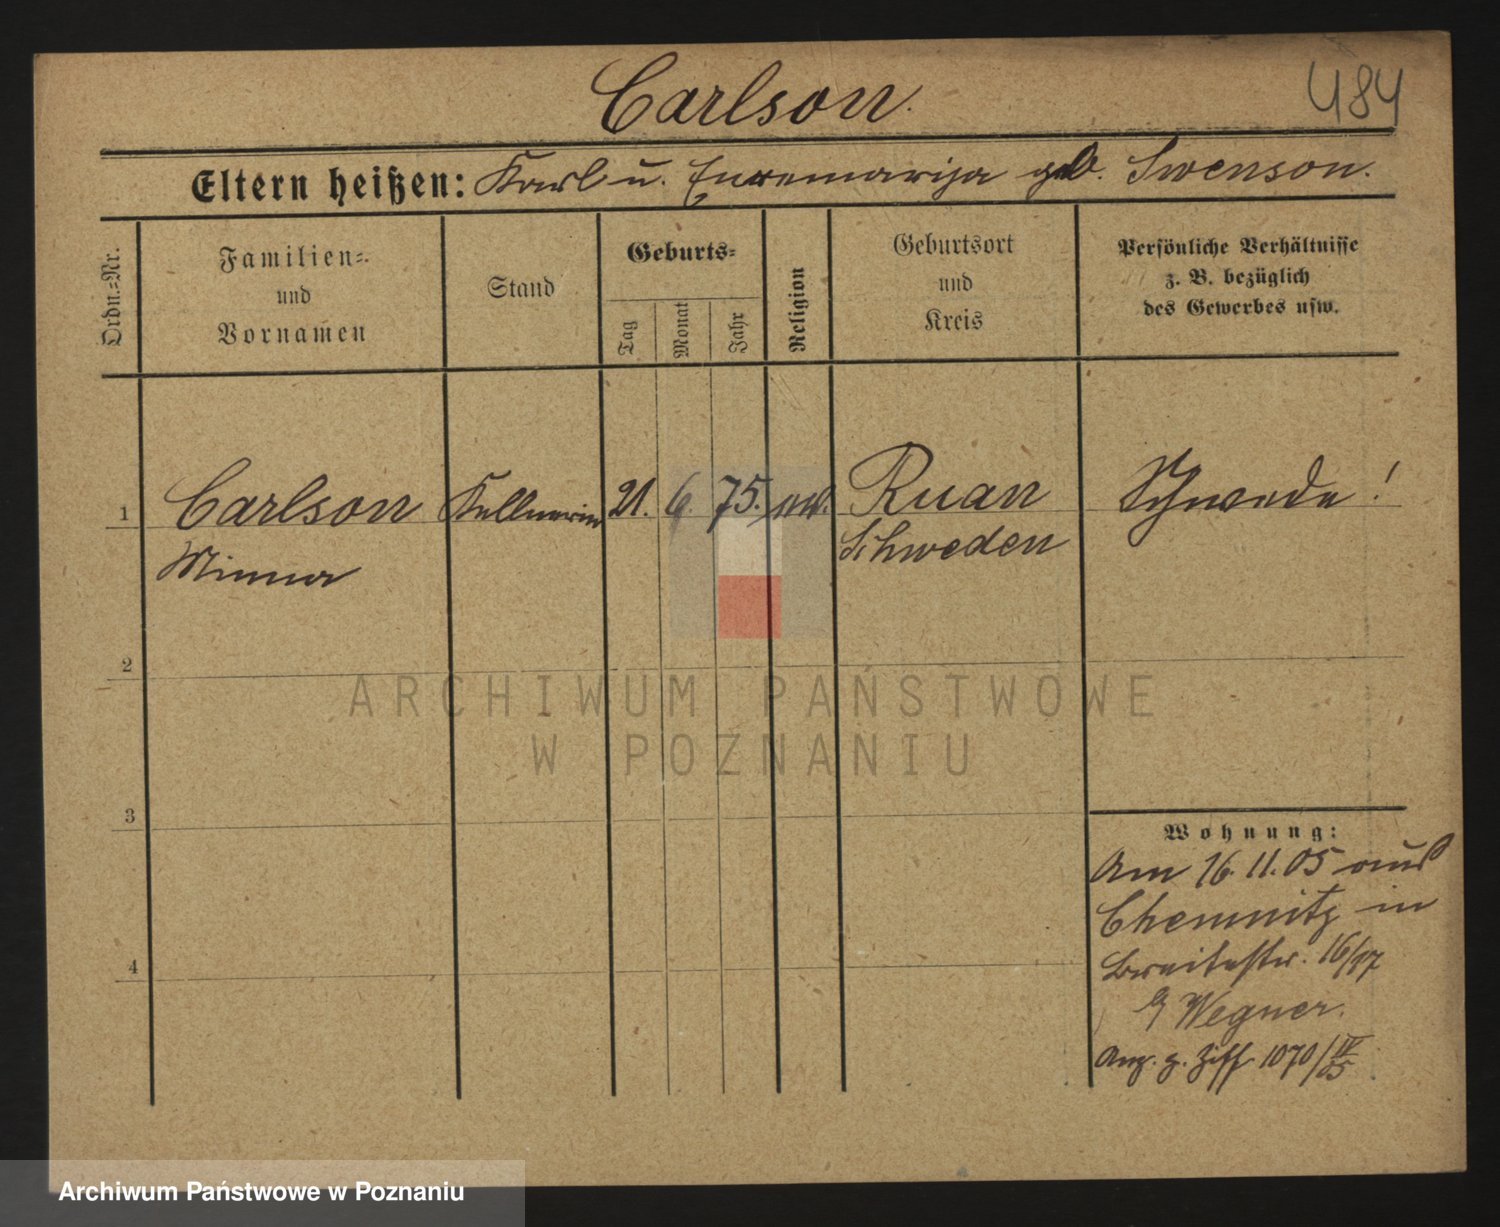 484
Carlson.
Eltern heißen: Karl u. geb. Swenson.
Ordn.-Nr.
Familien-
und
Vornamen
Stand
Geburts-
Tag
Monat
Jahr
Religion
Geburtsort
und
Kreis
Persönliche Verhältnisse
z. B. bezüglich
des Gewerbes usw.
1 Carlson Kellnerin 21. 6. 75. ev. Ruan Schwede!
Minna Schweden
2
ARCHIWUM PAŃSTWOWE
W POZNANIU
3
Wohnung:
Am 16.11.05 aus
Chemnitz in
4
Breitestr. 16/17
Wegner.
Anz. z. Ziff 1070/IV 05
Archiwum Państwowe w Poznaniu